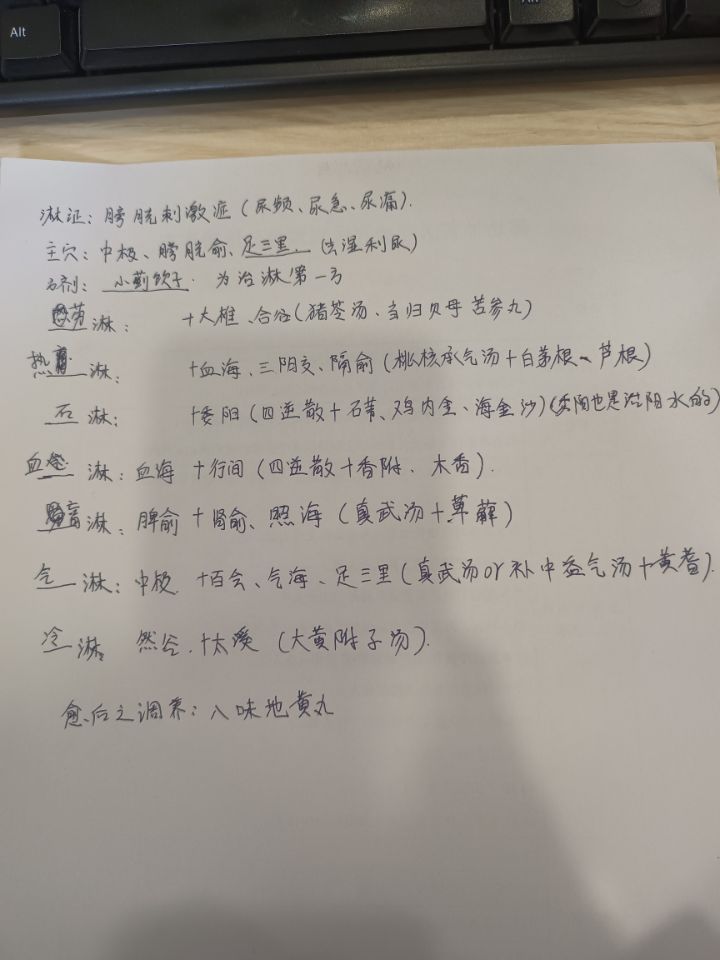 Alt
Alt
淋证：膀胱刺激症（尿频、尿急、尿痛）.
主穴：中极、膀胱俞、足三里.（去湿利尿）
名剂：小蓟饮子. 为治淋第一方
劳淋：+大椎、合谷（猪苓汤、当归贝母苦参丸）
热淋：+血海、三阴交、隔俞（桃核承气汤+白茅根、芦根）
石淋：+委阳（四逆散+石苇、鸡内金、海金沙）（委阳也是治阳水的）
血淋：血海+行间（四逆散+香附、木香）.
膏淋：脾俞+肾俞、照海（真武汤+萆薢）
气淋：中极. +百会、气海、足三里（真武汤or补中益气汤+黄耆）.
冷淋 然谷. +太溪（大黄附子汤）.
愈后之调养：八味地黄丸